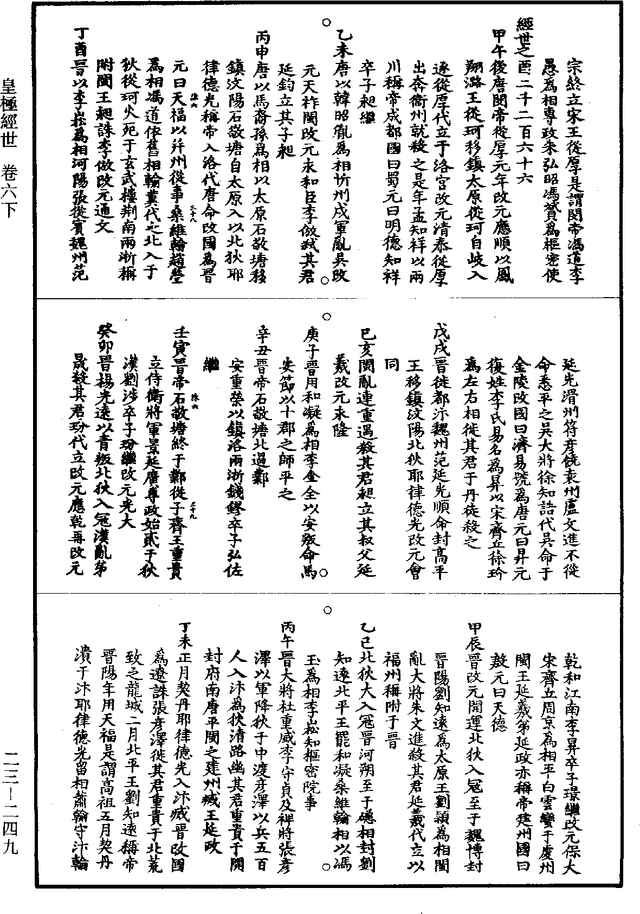 皇極經世 卷六下
二三—二四九
宗終立宋王從厚是謂閔帝馮道李
愚爲相專政朱弘昭馮贇爲樞密使
經世之酉二千二百六十六
甲午後唐閔帝從厚元年改元應順以鳳
翔潞王從珂移鎮太原從珂自岐入
逐從厚代立于洛宮改元清泰從厚
出奔衞州就殺之是年孟知祥以兩
川稱帝成都國曰蜀元曰明德知祥
卒子昶繼
乙未唐以韓昭胤爲相忻州戍軍亂吳改
元天祚閩改元永和臣李倣弑其君
延鈞立其子昶
丙申唐以馬裔孫爲相以太原石敬塘移
鎮汶陽石敬塘自太原入以北狄耶
律德光稱帝入洛代唐命改國爲晉
元曰天福以并州從事桑維翰趙瑩
爲相馮道依舊相輪冀代之北入于
狄從珂火死于玄武樓荆南兩浙稱
附閩王昶誅李倣改元通文
丁酉晉以李崧爲相河陽張從賓魏州范
延光滑州符彥饒袁州盧文進不從
命悉平之吳大將徐知誥代吳命于
金陵改國曰齊易號爲唐元曰昇元
復姓李氏易名爲昇以宋齊丘徐玠
爲左右相徙其君于丹徒殺之
戊戌晉徙都汴魏州范延光順命封高平
王移鎮汶陽北狄耶律德光改元會
同
己亥閩亂連重遇殺其君昶立其叔父延
羲改元永隆
庚子晉用和凝爲相李金全以安叛命馬
安節以十郡之師平之
辛丑晉帝石敬塘北過鄴
安重榮以鎮洛兩浙錢鏐卒子弘佐
繼
壬寅晉帝石敬塘終于鄴從子齊王重貴
立侍衞將軍景延廣專政始貳于狄
漢劉涉卒子玢繼改元光大
癸卯晉楊光遠以青叛北狄入寇漢亂弟
晟殺其君玢代立改元應乾再改元
乾和江南李昇卒子璟繼改元保大
宋齊丘周京爲相平白雲蠻于虔州
閩王延羲弟延政亦稱帝建州國曰
殷元曰天德
甲辰晉改元開運北狄入寇至于魏博封
晉陽劉知遠爲太原王劉潁爲相閩
亂大將朱文進殺其君延羲代立以
福州稱附于晉
乙巳北狄大入寇晉河朔至于磁相封劉
知遠北平王罷和凝桑維翰相以馮
玉爲相李崧知樞密院事
丙午晉大將杜重威李守貞及裨將張彥
澤以軍降狄于中渡彥澤以兵五百
人入汴爲狄清路幽其君重貴于開
封府南唐平閩之建州滅王延政
丁未正月契丹耶律德光入汴滅晉改國
爲遼誅張彥澤徙其君重貴于北荒
致之龍城二月北平王劉知遠稱帝
晉陽年用天福是謂高祖五月契丹
潰于汴耶律德光留相蕭翰守汴輪